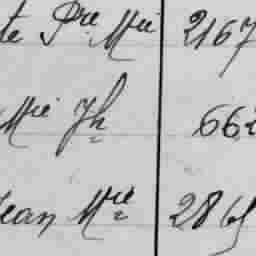 te Pre Mie 2167
Mie Jh 662
Jean Mie 2865